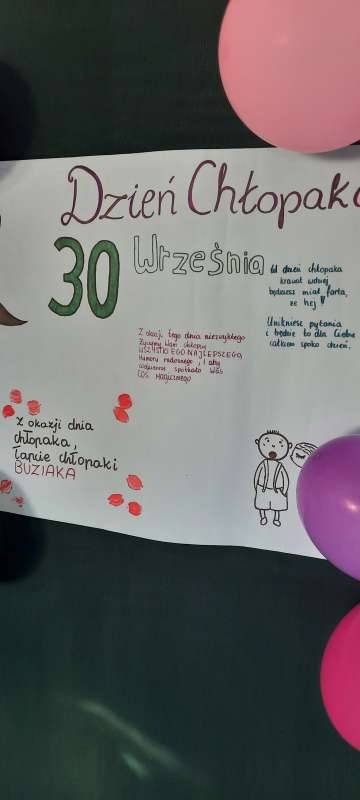 Dzień Chłopaka
30 Września
W dzień chłopaka
krawat włóż
będziesz miał farta,
że hej!
Unikniesz pytania
i będzie to dla Ciebie
całkiem spoko dzień.
Z okazji tego dnia niezwykłego
życzymy Wam chłopcy
WSZYSTKIEGO NAJLEPSZEGO,
Humoru radosnego, i aby
codziennie spotkało Was
COŚ magicznego
Z okazji dnia
chłopaka,
łapcie chłopaki
BUZIAKA